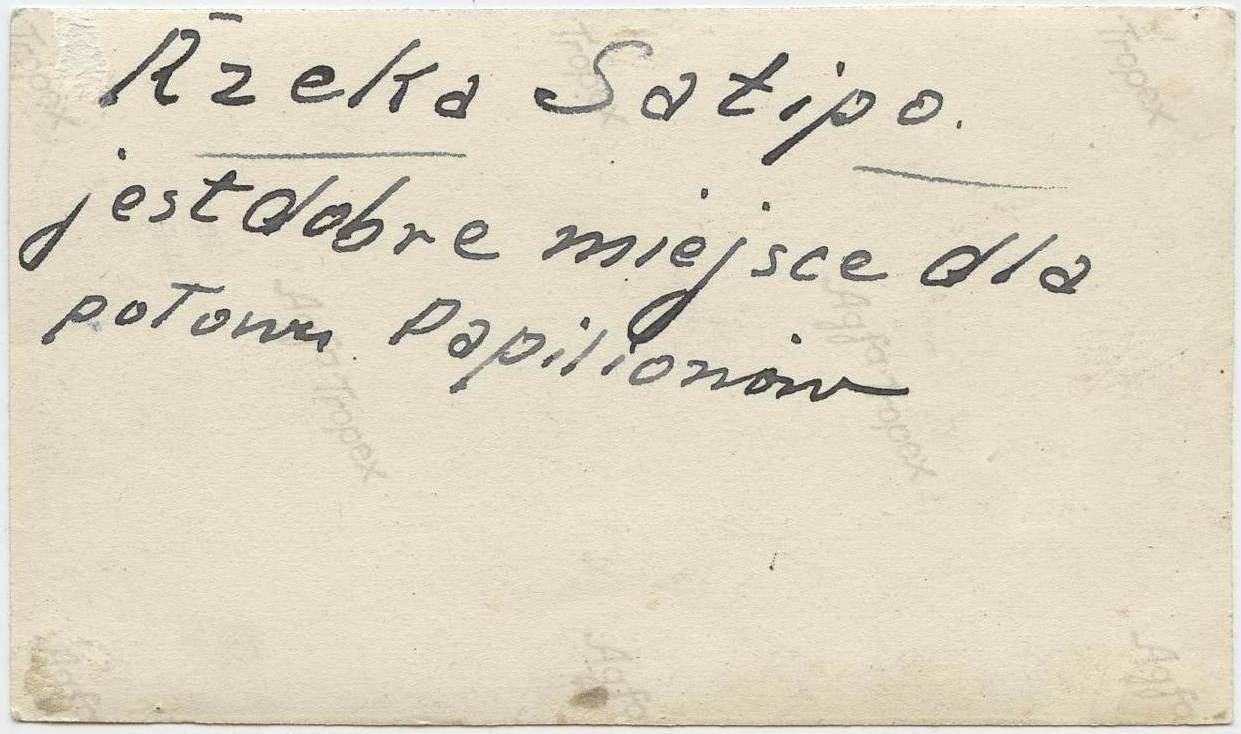 Rzeka Satipo.
jest dobre miejsce dla
połowu Papilionów
Tropex
Tropex
Tropex
Agfa Tropex
Agfa Tropex
Agfa
Agfa
Agfa